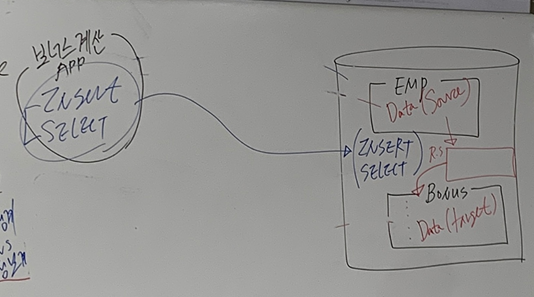 보너스계산
APP
INSERT
SELECT
EMP
Data (Source)
(INSERT
SELECT)
R.S
BONUS
Data (target)